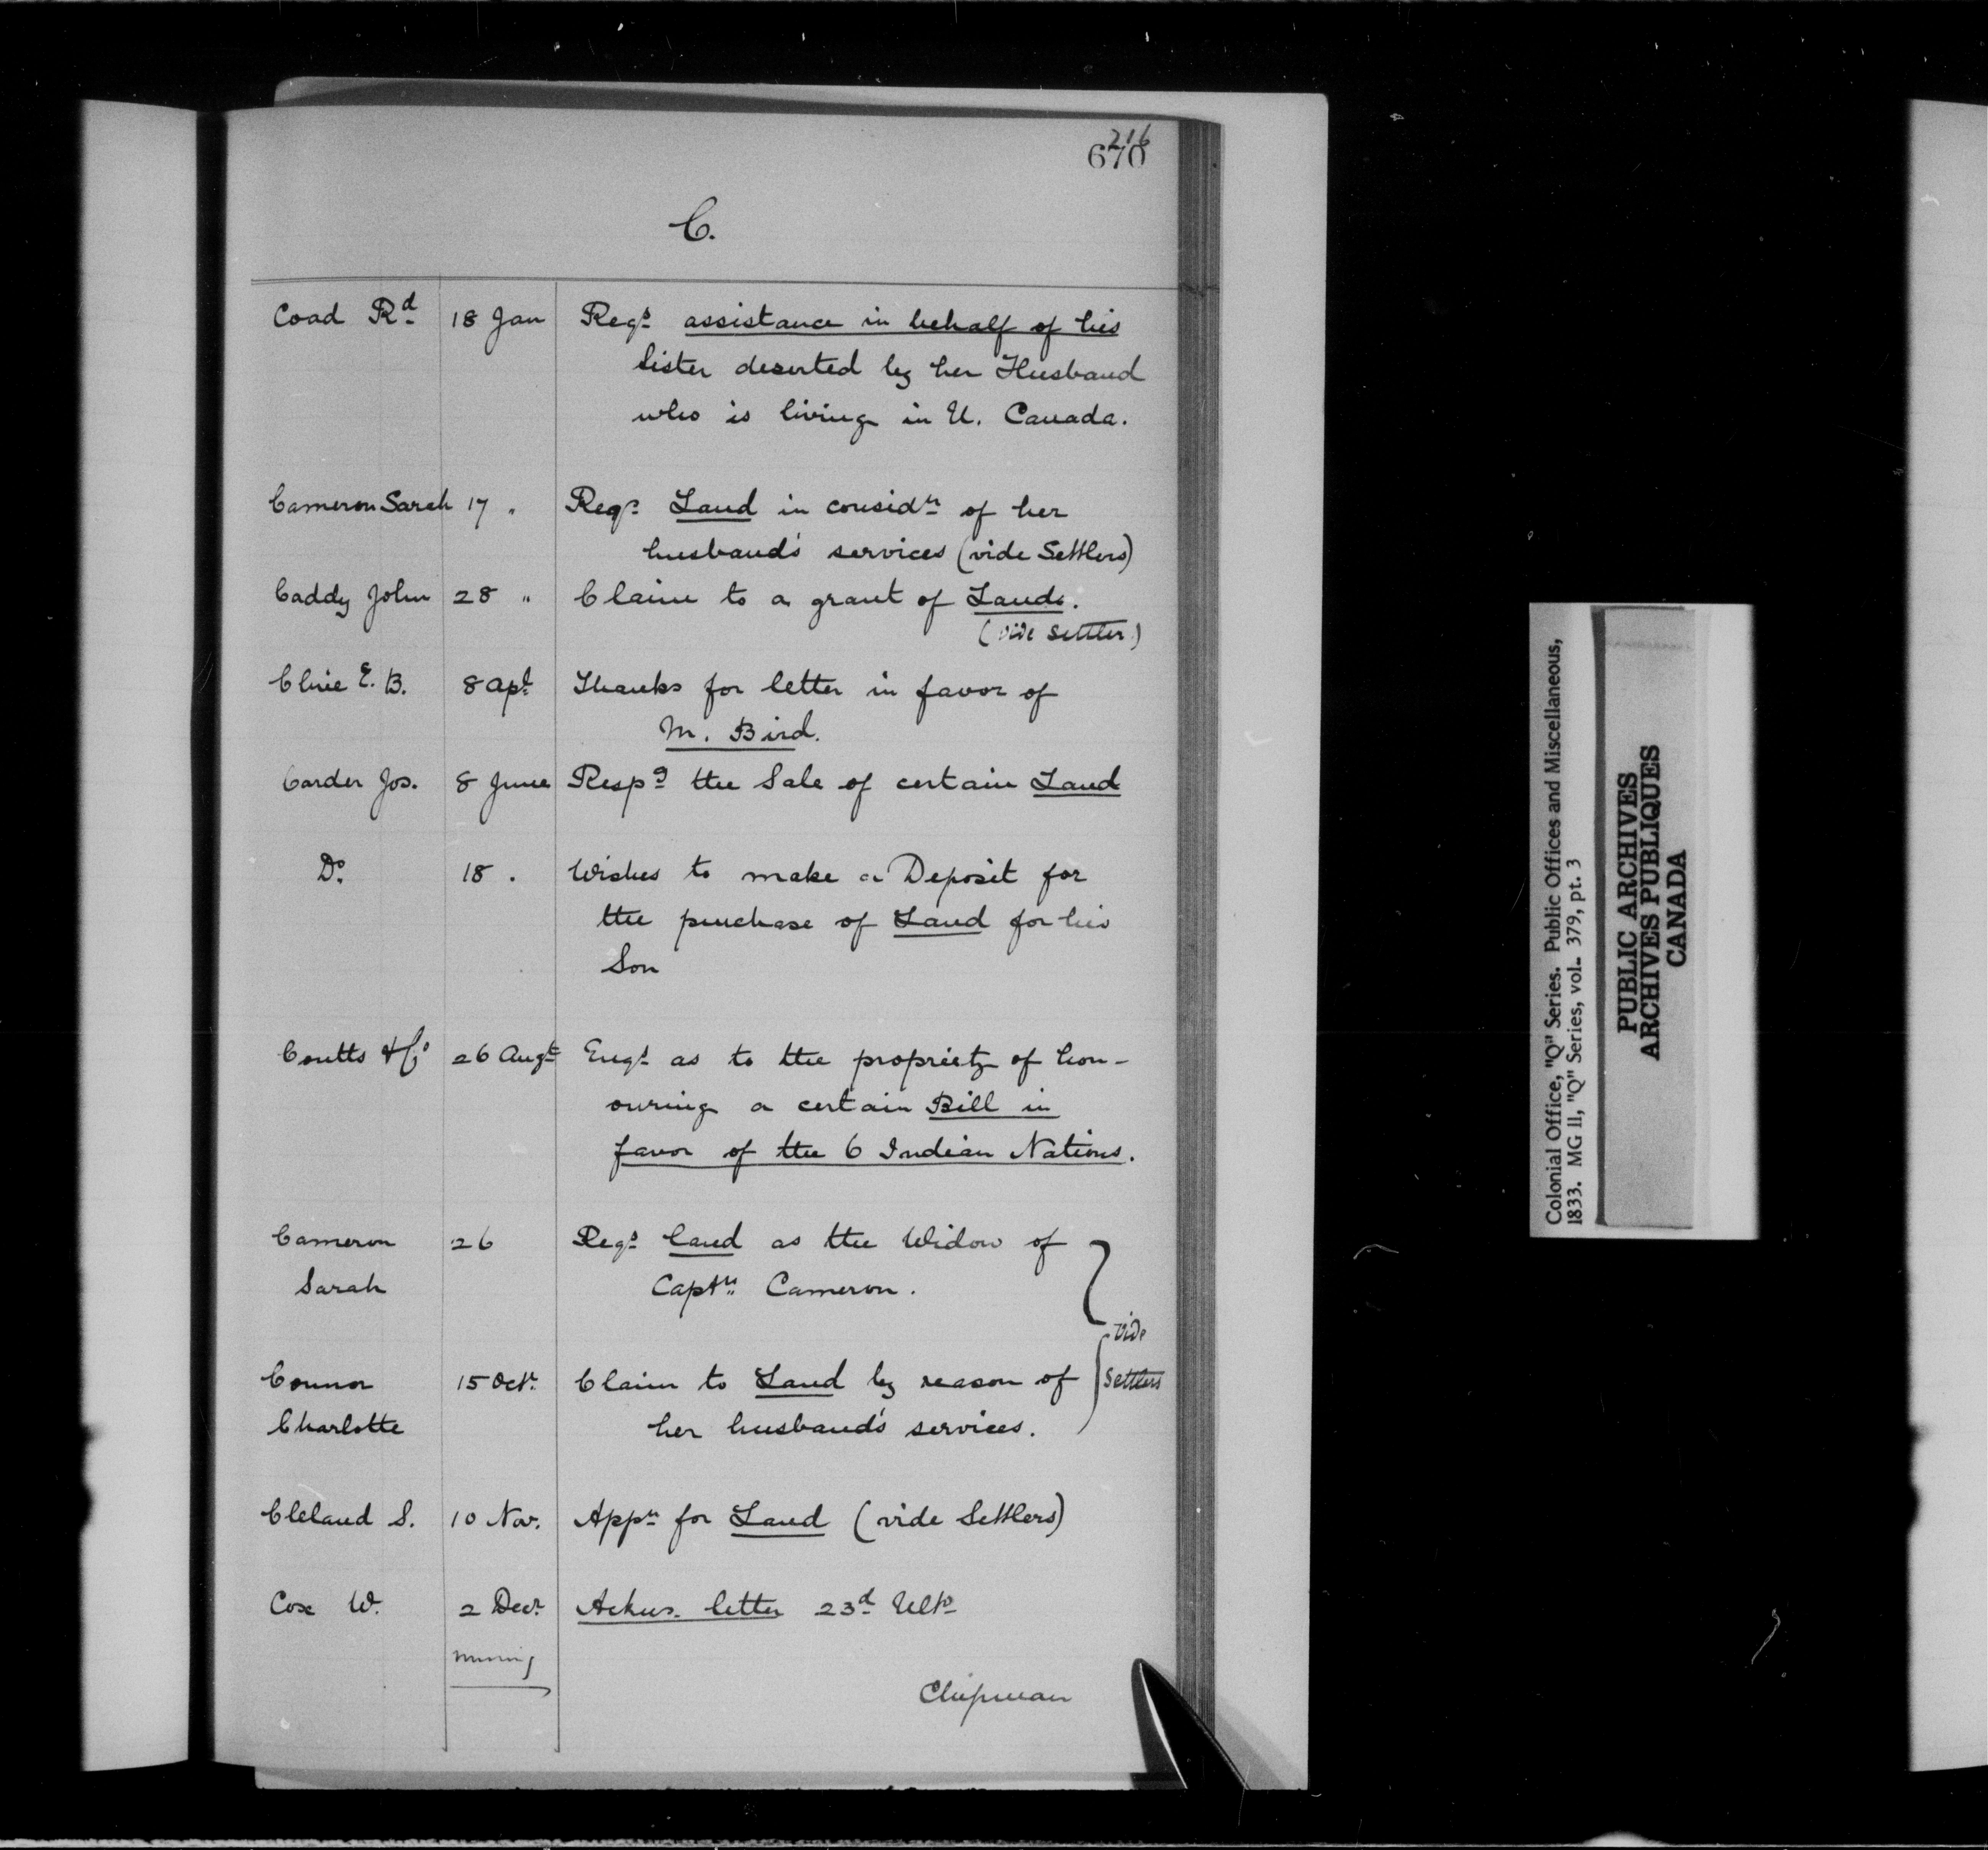 216
670
C.
Coad Rd 18 Jan Reqs assistance in behalf of his
Sister deserted by her Husband
who is living in U. Canada.
Cameron Sarah 17 " Reqs Land in considn of her
husband's services (vide Settlers)
Caddy John 28 " Claim to a grant of Lands.
(vide settler)
E. B. 8 Apl Thanks for letter in favor of
M. Bird.
Carder Jos. 8 June Respg the Sale of certain Land
Do. 18 . Wishes to make a Deposit for
the purchase of Land for his
Son
Coutts & Co 26 Augt Enqs as to the propriety of hon-
ouring a certain Bill in
favor of the 6 Indian Nations.
Cameron 26 Reqs land as the Widow of
Sarah Captn Cameron.
vide
Connor 15 Octr. Claim to Land by reason of Settlers
Charlotte her husband's services.
Cleland S. 10 Nov. Appn for Land (vide Settlers)
Cox W. 2 Decr. Ackns. letter 23d Ulto
Chipman
Colonial Office, "Q" Series. Public Offices and Miscellaneous,
1833. MG 11, "Q" Series, vol. 379, pt. 3
PUBLIC ARCHIVES
ARCHIVES PUBLIQUES
CANADA